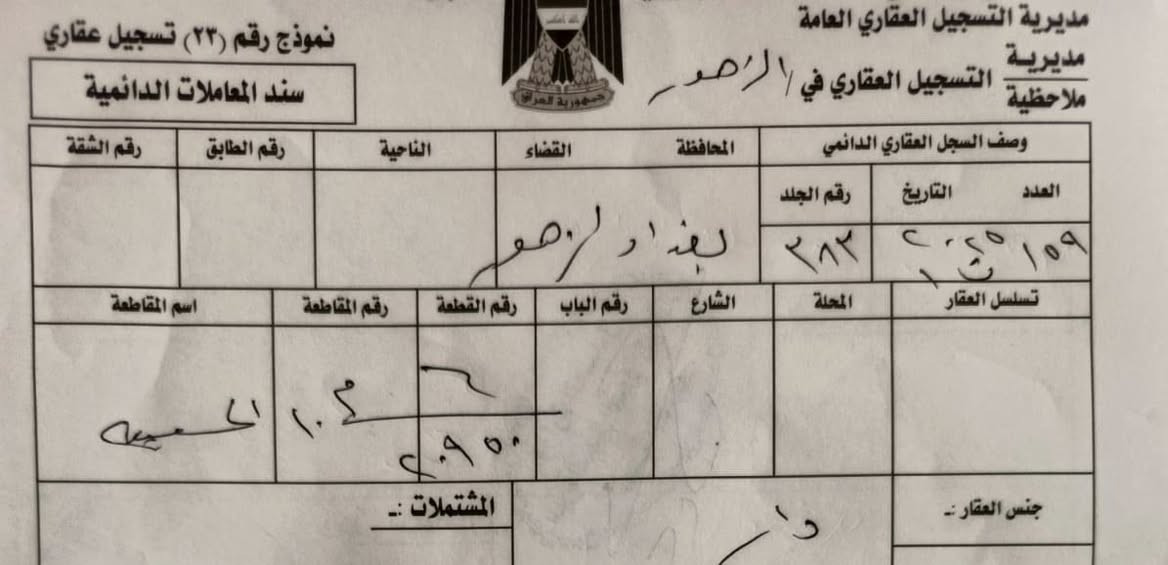 مديرية التسجيل العقاري العامة
مديرية
ملاحظية
التسجيل العقاري في الزهور
جمهورية العراق
نموذج رقم (٢٣) تسجيل عقاري
سند المعاملات الدائمية
وصف السجل العقاري الدائمي المحافظة القضاء الناحية رقم الطابق رقم الشقة
العدد التاريخ رقم الجلد
١٥٩ ت١ ٢٠٢٥ ٣٨٣ بغداد الزهور
تسلسل العقار المحلة الشارع رقم الباب رقم القطعة رقم المقاطعة اسم المقاطعة
٢٠٩٥٠ م ١٠
جنس العقار :ـ دار المشتملات :ـ